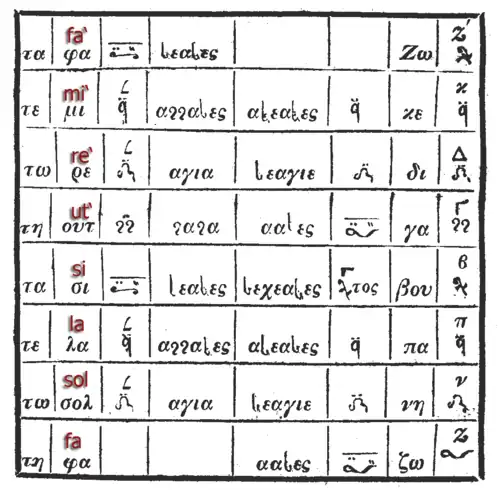 τα fa' φα νεανες Ζω Ζ'
τε mi' μι αννανες ανεανες κε κ
τω re' ρε αγια νεαγιε δι Δ
τη ut' ουτ νανα αανες γα Γ
τα si σι νεανες νεχεανες βου β
τε la λα αννανες ανεανες πα π
τω sol σολ αγια νεαγιε νη ν
τη fa φα αανες ζω Ζ